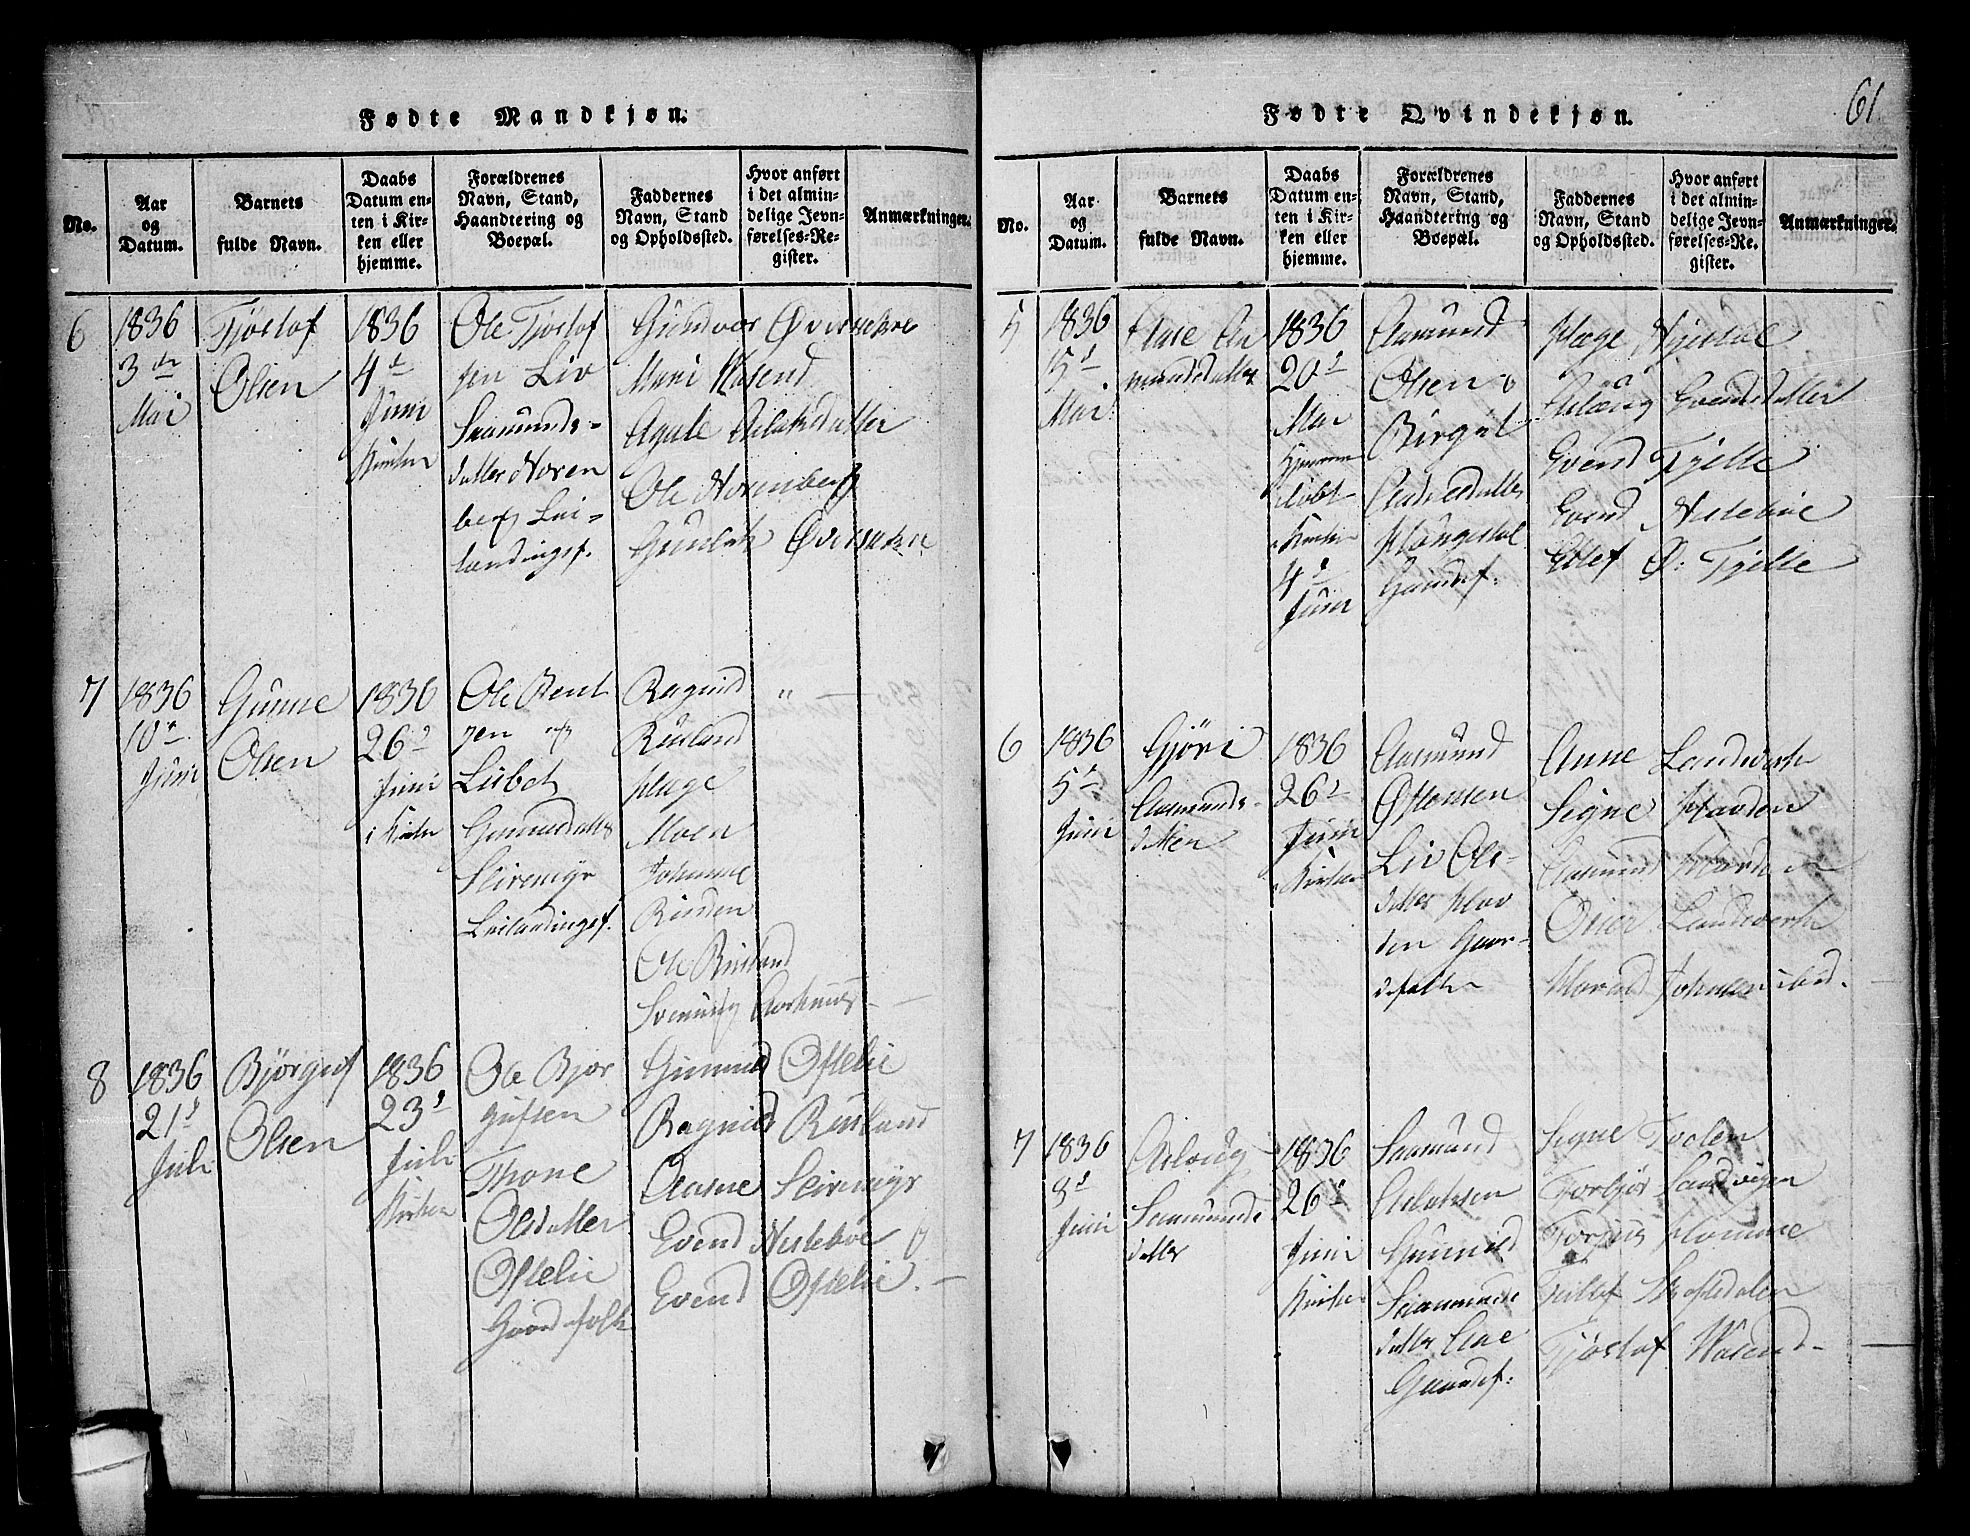 Fødte Mandkjøn.
No.
Aar
og
Datum.
Barnets
fulde Navn.
Daabs
Datum en-
ten i Kir-
ken eller
hjemme.
Forældrenes
Navn, Stand,
Haandtering og
Boepæl.
Faddernes
Navn, Stand
og Opholdssted.
Hvor anført
i det almin-
delige Jevn-
førelses-Re-
gister.
Anmærkninger.
6
1836
3die
Mai
Tjøstof
Olsen
1836
4d
Juni
Kirken
Ole Tjostof
sen Liv
Saamunds-
datter Noren
berg Lei-
landingsf.
Gundvor Øversakre
Mari Kasend
Agate Aslaksdatter
Ole Norenberg
Gunlek Øversakre
7
1836
10de
Juni
Gunne
Olsen
1836
26d
Juni
i Kirken
Ole Bent
sen og
Lisbet
Gunnesdatter
Seiremyr
Leilandingsf.
Ragnid
Rusland
Hage
Moen
Johanne
Rinden
Ole Rusland
Svenung
8
1836
21d
Juli
Bjørguf
Olsen
1836
23d
Juli
Kirken
Ole Bjor
gufsen
Thone
Olsdatter
Oftelie
Gaardfolk
Gunnild Oftelie
Ragnild Rusland
Aasne Seiremyr
Evend Neslebøe
Evend Oftelie.
61.
Fødte Qvindekjøn.
No.
Aar
og
Datum.
Barnets
fulde Navn.
Daabs
Datum en-
ten i Kir-
ken eller
hjemme.
Forældrenes
Navn, Stand,
Haandtering og
Boepæl.
Faddernes
Navn, Stand
og Opholdssted.
Hvor anført
i det almin-
delige Jevn-
førelses-Re-
gister.
Anmærkninger.
5
1836
15d
Mai
Aase Aa
mundsdatter
1836
20d
Mai
Hjemme
døbt
i Kirken
4d
Juni
Aamund
Olsen o
Birgit
Haugestol
Gaardsf.
Hæge
Aslaug Evensdatter
Evend Tjelle
Evend Neslebøe
Edlef O: Tjelle
6
1836
5d
Juni
Gjøri
Aasmunds-
datter
1836
26d
Juni
i Kirken
Aasmund
Østensen
Liv Ols-
datter Hav
den Gaar-
dsfolk
Anne Landsverk
Signe Havden
Aasmund Havden
Landsverk
Harald Johnsen ibid.
7
1836
8d
Juni
Aslaug
Saamunds
datter
1836
26d
Juni
Kirken
Saamund
Aslaksen
Gunnild
Saamunds
datter
Gaardsf.
Signe Tveten
Torbjør Sandvigen
Torjus Homme
Skoftedalen
Tjøstof Kasend